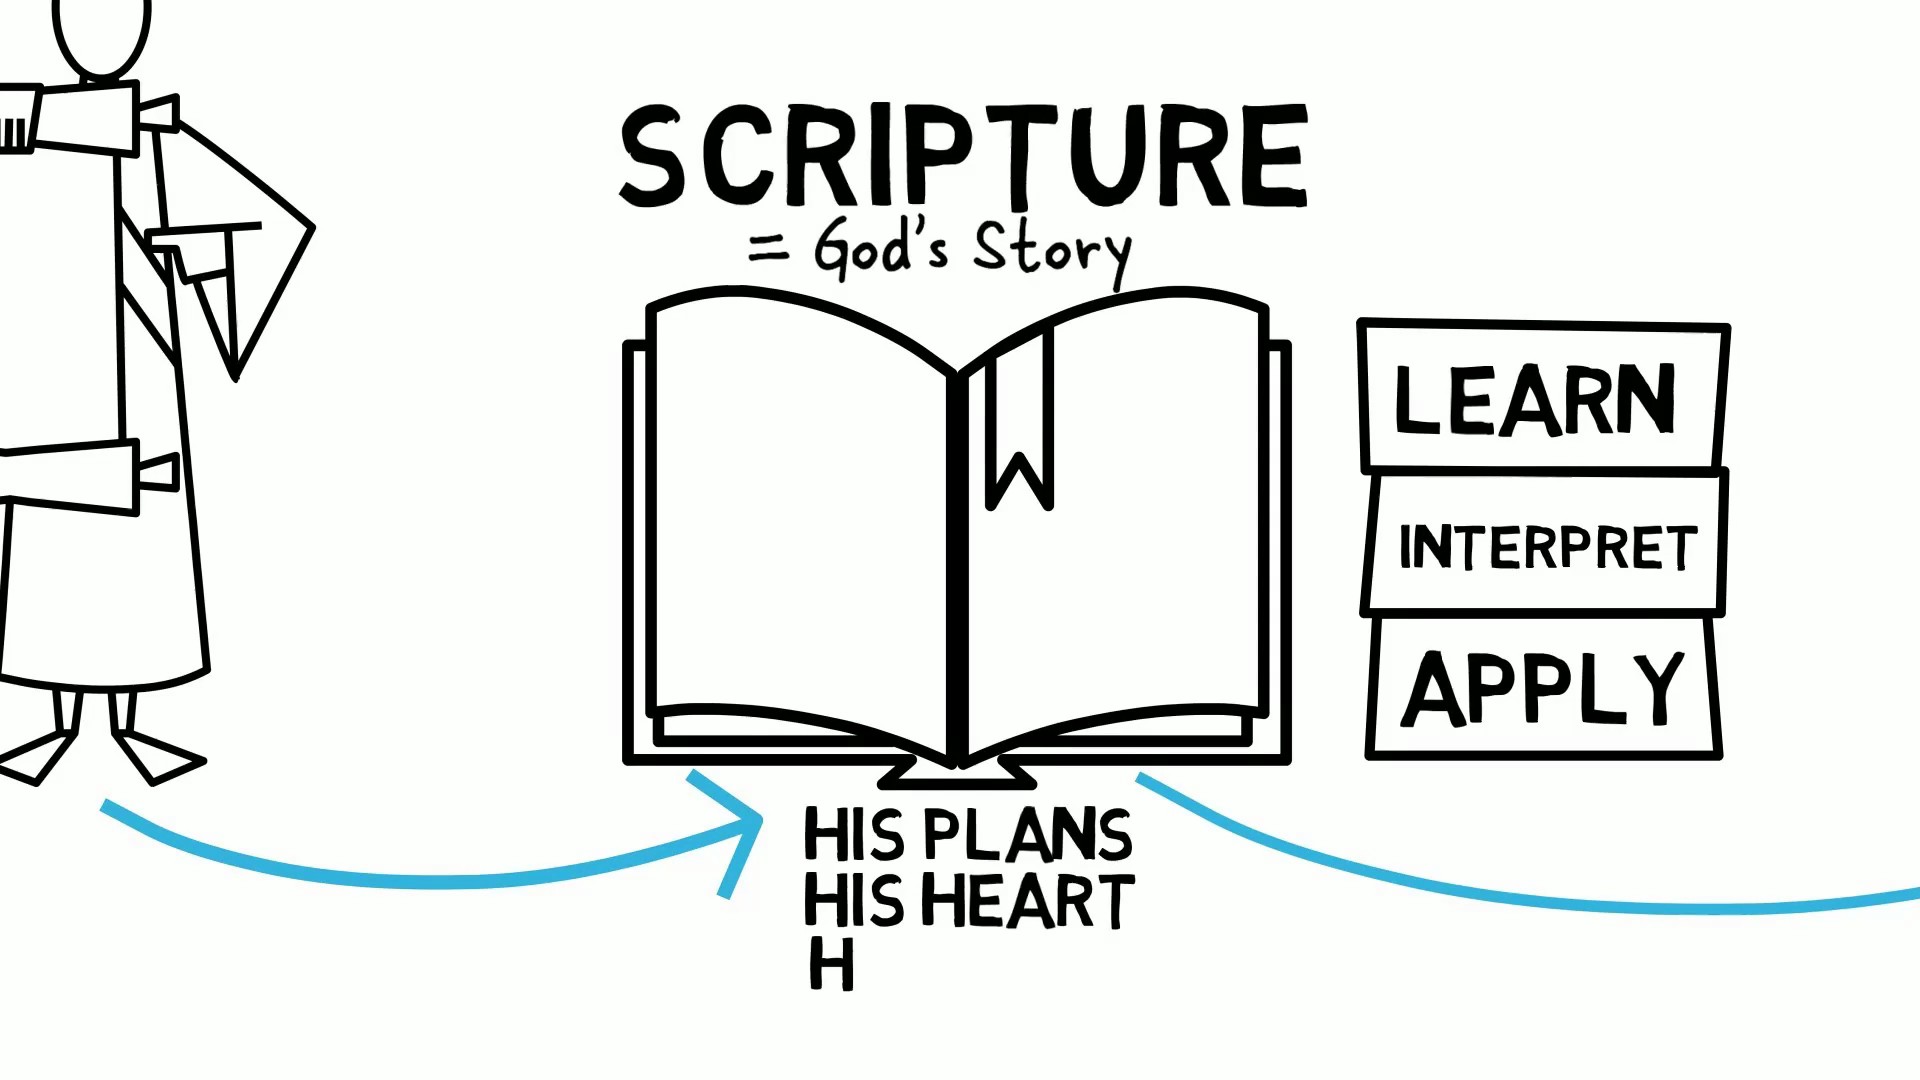 SCRIPTURE
= God's Story
LEARN
INTERPRET
APPLY
HIS PLANS
HIS HEART
H